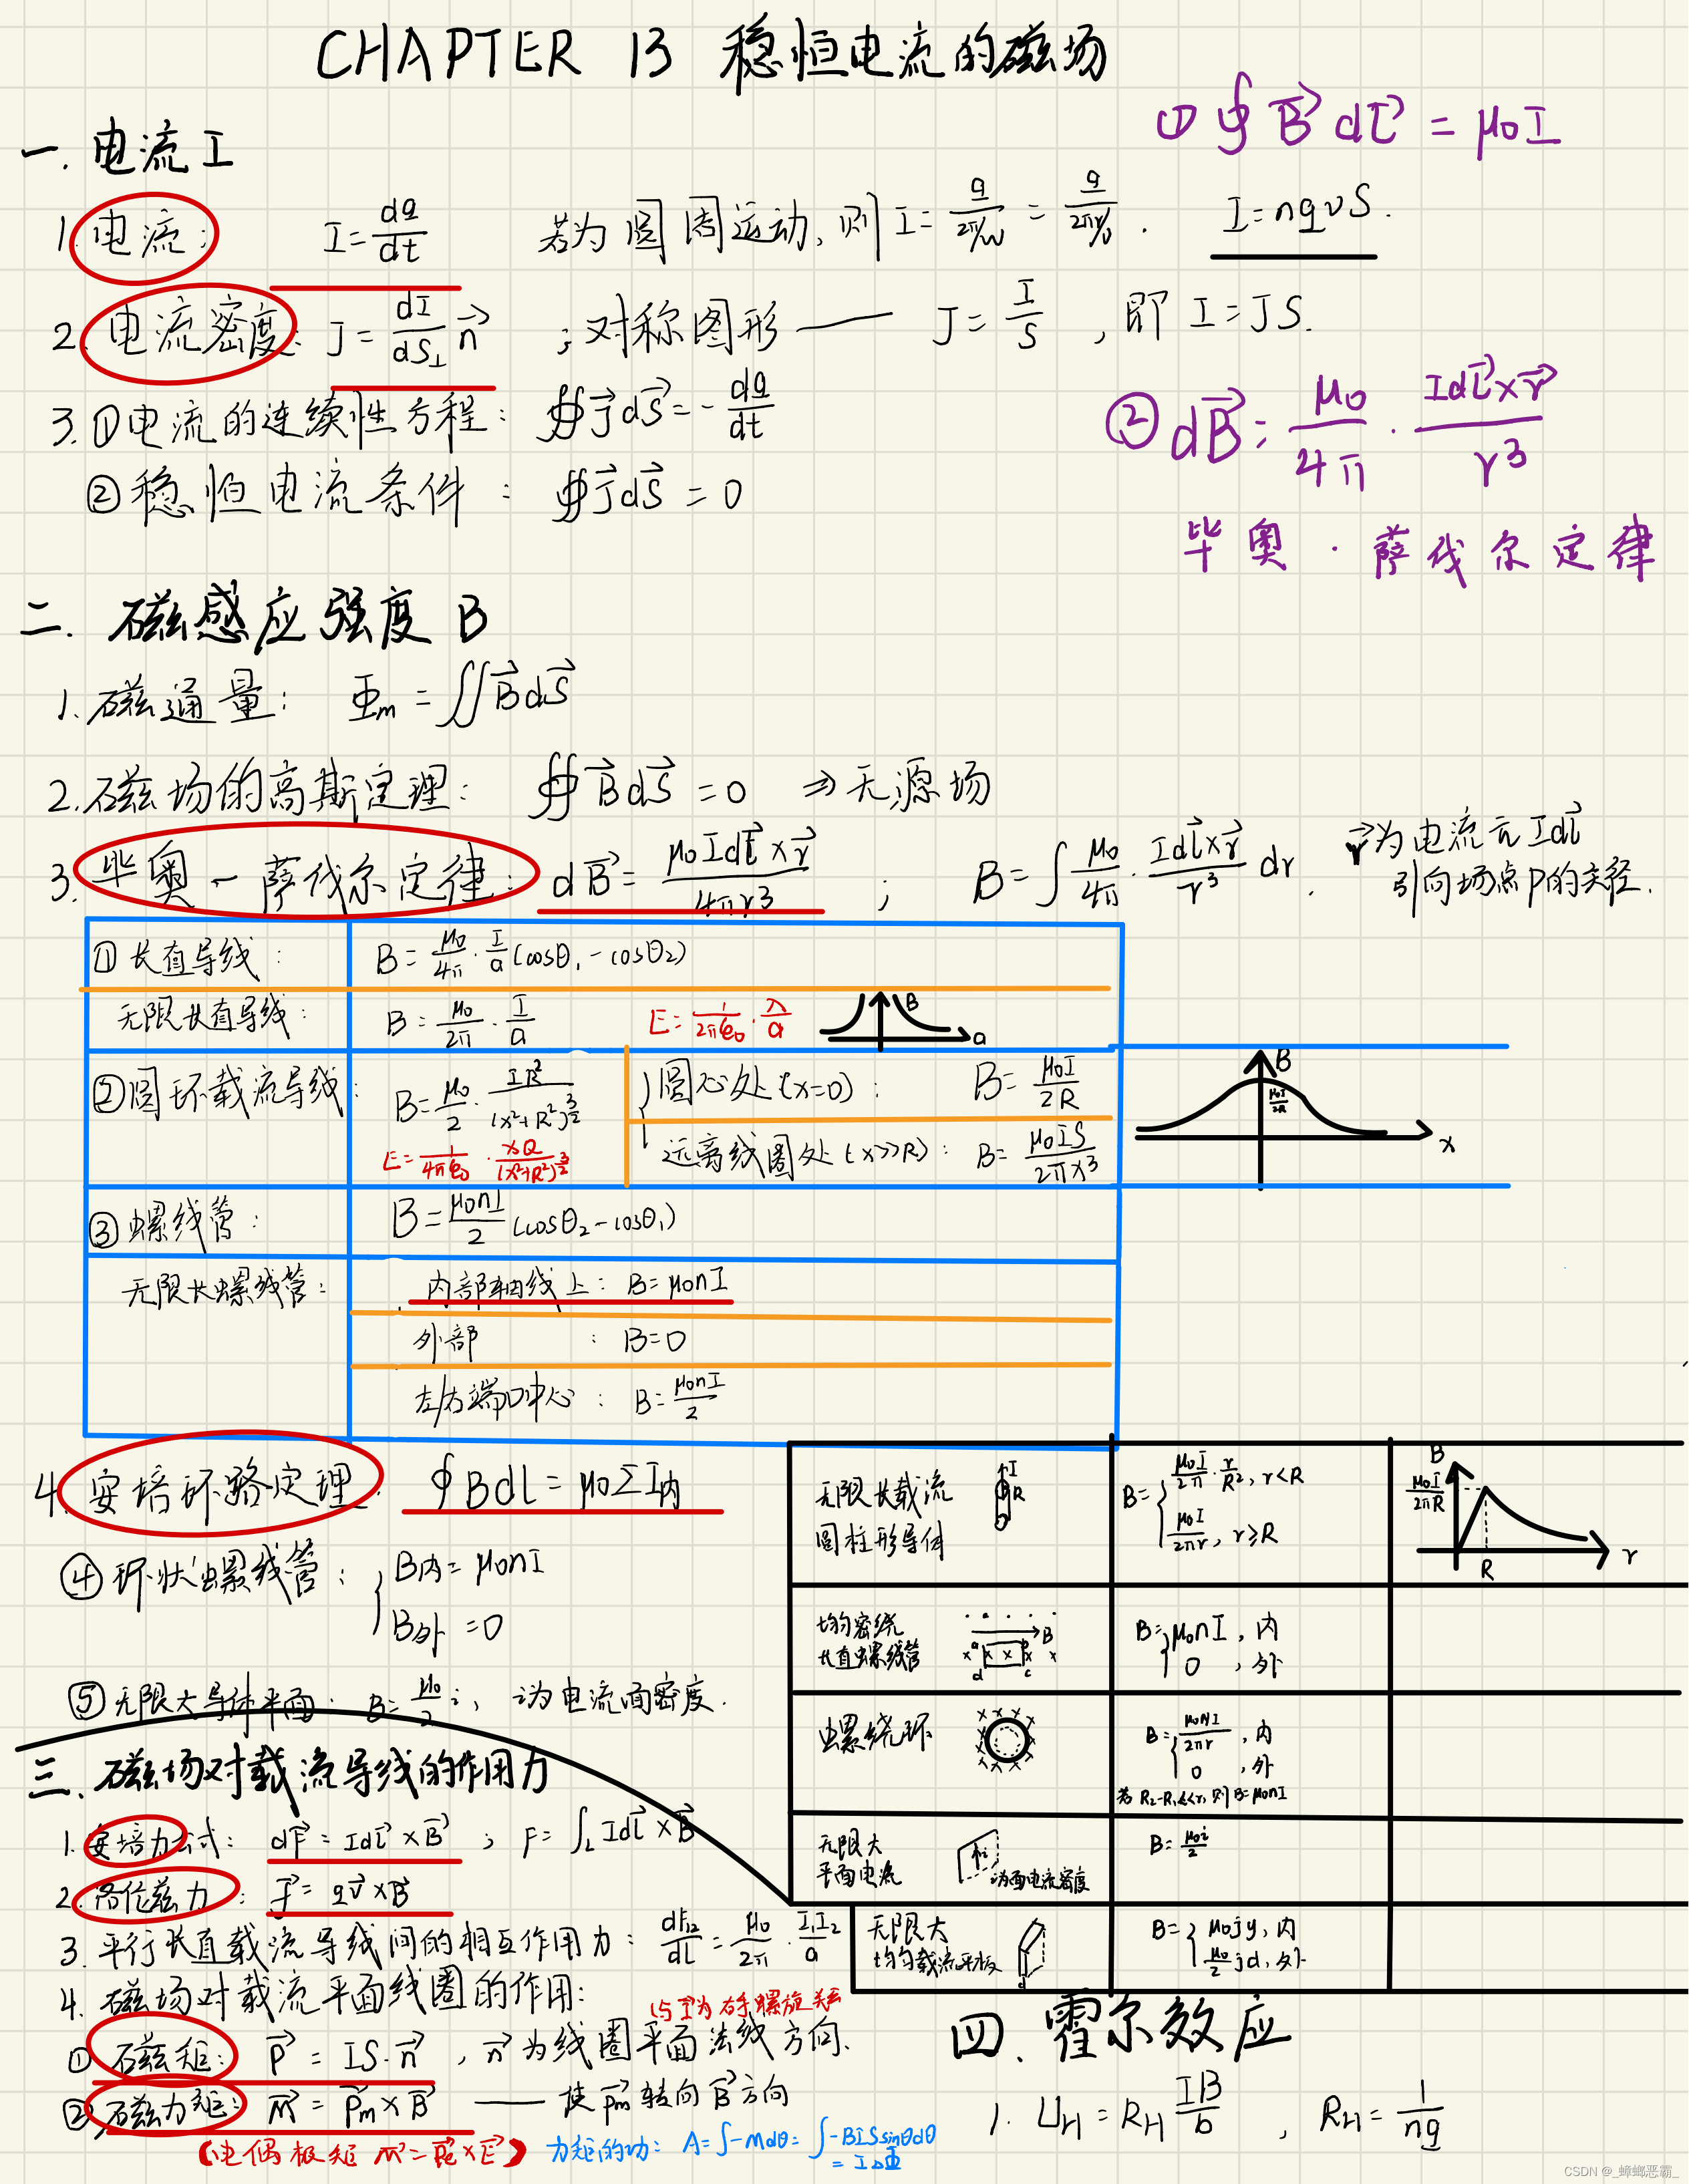 CHAPTER 13 稳恒电流的磁场
① ∮B⃗ dl⃗ = μ₀I
一. 电流 I
1. 电流: I = dq/dt 若为圆周运动, 则 I = q/(2π/ω) = q/(2πr/v) . I = nqvS.
2. 电流密度: J = dI/dS⊥ n⃗ ; 对称图形 —— J = I/S , 即 I = JS.
3. ① 电流的连续性方程: ∯ J⃗ dS⃗ = - dq/dt
② 稳恒电流条件 : ∯ J⃗ dS⃗ = 0
② dB⃗ = μ₀/4π · Idl⃗×r⃗/r³
毕奥·萨伐尔定律
二. 磁感应强度 B
1. 磁通量: Φm = ∬B⃗ dS⃗
2. 磁场的高斯定理: ∯ B⃗ dS⃗ = 0 ⇒ 无源场
3. 毕奥-萨伐尔定律: dB⃗ = μ₀Idl⃗×r⃗/4πr³ ; B = ∫ μ₀/4π · Idl⃗×r⃗/r³ dr . r⃗为电流元Idl⃗
引向场点P的矢径.
① 长直导线: B = μ₀/4π · I/a (cosθ₁ - cosθ₂)
无限长直导线: B = μ₀/2π · I/a E = 1/2πε₀ · λ/a B a
② 圆环载流导线: B = μ₀/2 · IR²/(x²+R²)^(3/2) 圆心处 (x=0): B = μ₀I/2R
E = 1/4πε₀ · xQ/(x²+R²)^(3/2) 远离线圈处 (x>>R): B = μ₀IS/2πx³
B μ₀I/2R x
③ 螺线管: B = μ₀nI/2 (cosθ₂ - cosθ₁)
无限长螺线管: 内部轴线上: B = μ₀nI
外部 : B = 0
左/右端口中心: B = μ₀nI/2
4. 安培环路定理: ∮Bdl = μ₀ΣI内
④ 环状螺线管: { B内 = μ₀nI
B外 = 0
⑤ 无限大导体平面: B = μ₀/2 i , i为电流面密度.
无限长载流 I R B = { μ₀I/2π · r/R², r<R B μ₀I/2πR R r
圆柱形导体 μ₀I/2πr, r≥R
均匀密绕 B B = { μ₀nI, 内
长直螺线管 a b c d 0 , 外
螺绕环 B = { μ₀NI/2πr , 内
0 , 外
若 R₂-R₁<<r, 则 B = μ₀nI
无限大 i B = μ₀i/2
平面电流 i为面电流密度
无限大 B = { μ₀jy, 内
均匀载流平板 d μ₀/2 jd, 外
三. 磁场对载流导线的作用力
1. 安培力公式: dF⃗ = Idl⃗ × B⃗ ; F = ∫L Idl⃗ × B⃗
2. 洛伦兹力: f⃗ = qv⃗ × B⃗
3. 平行长直载流导线间的相互作用力: dF₁₂/dl = μ₀/2π · I₁I₂/a
4. 磁场对载流平面线圈的作用:
(与I为右手螺旋关系
① 磁矩: P⃗ = IS·n⃗ , n⃗为线圈平面法线方向.
② 磁力矩: M⃗ = P⃗m × B⃗ —— 使P⃗m转向B⃗方向
(电偶极矩 M⃗ = P⃗e × E⃗) 力矩的功: A = ∫-Mdθ = ∫-BISsinθdθ
= IΔΦ
四. 霍尔效应
1. UH = RH IB/b , RH = 1/nq
CSDN @_蟑螂恶霸_